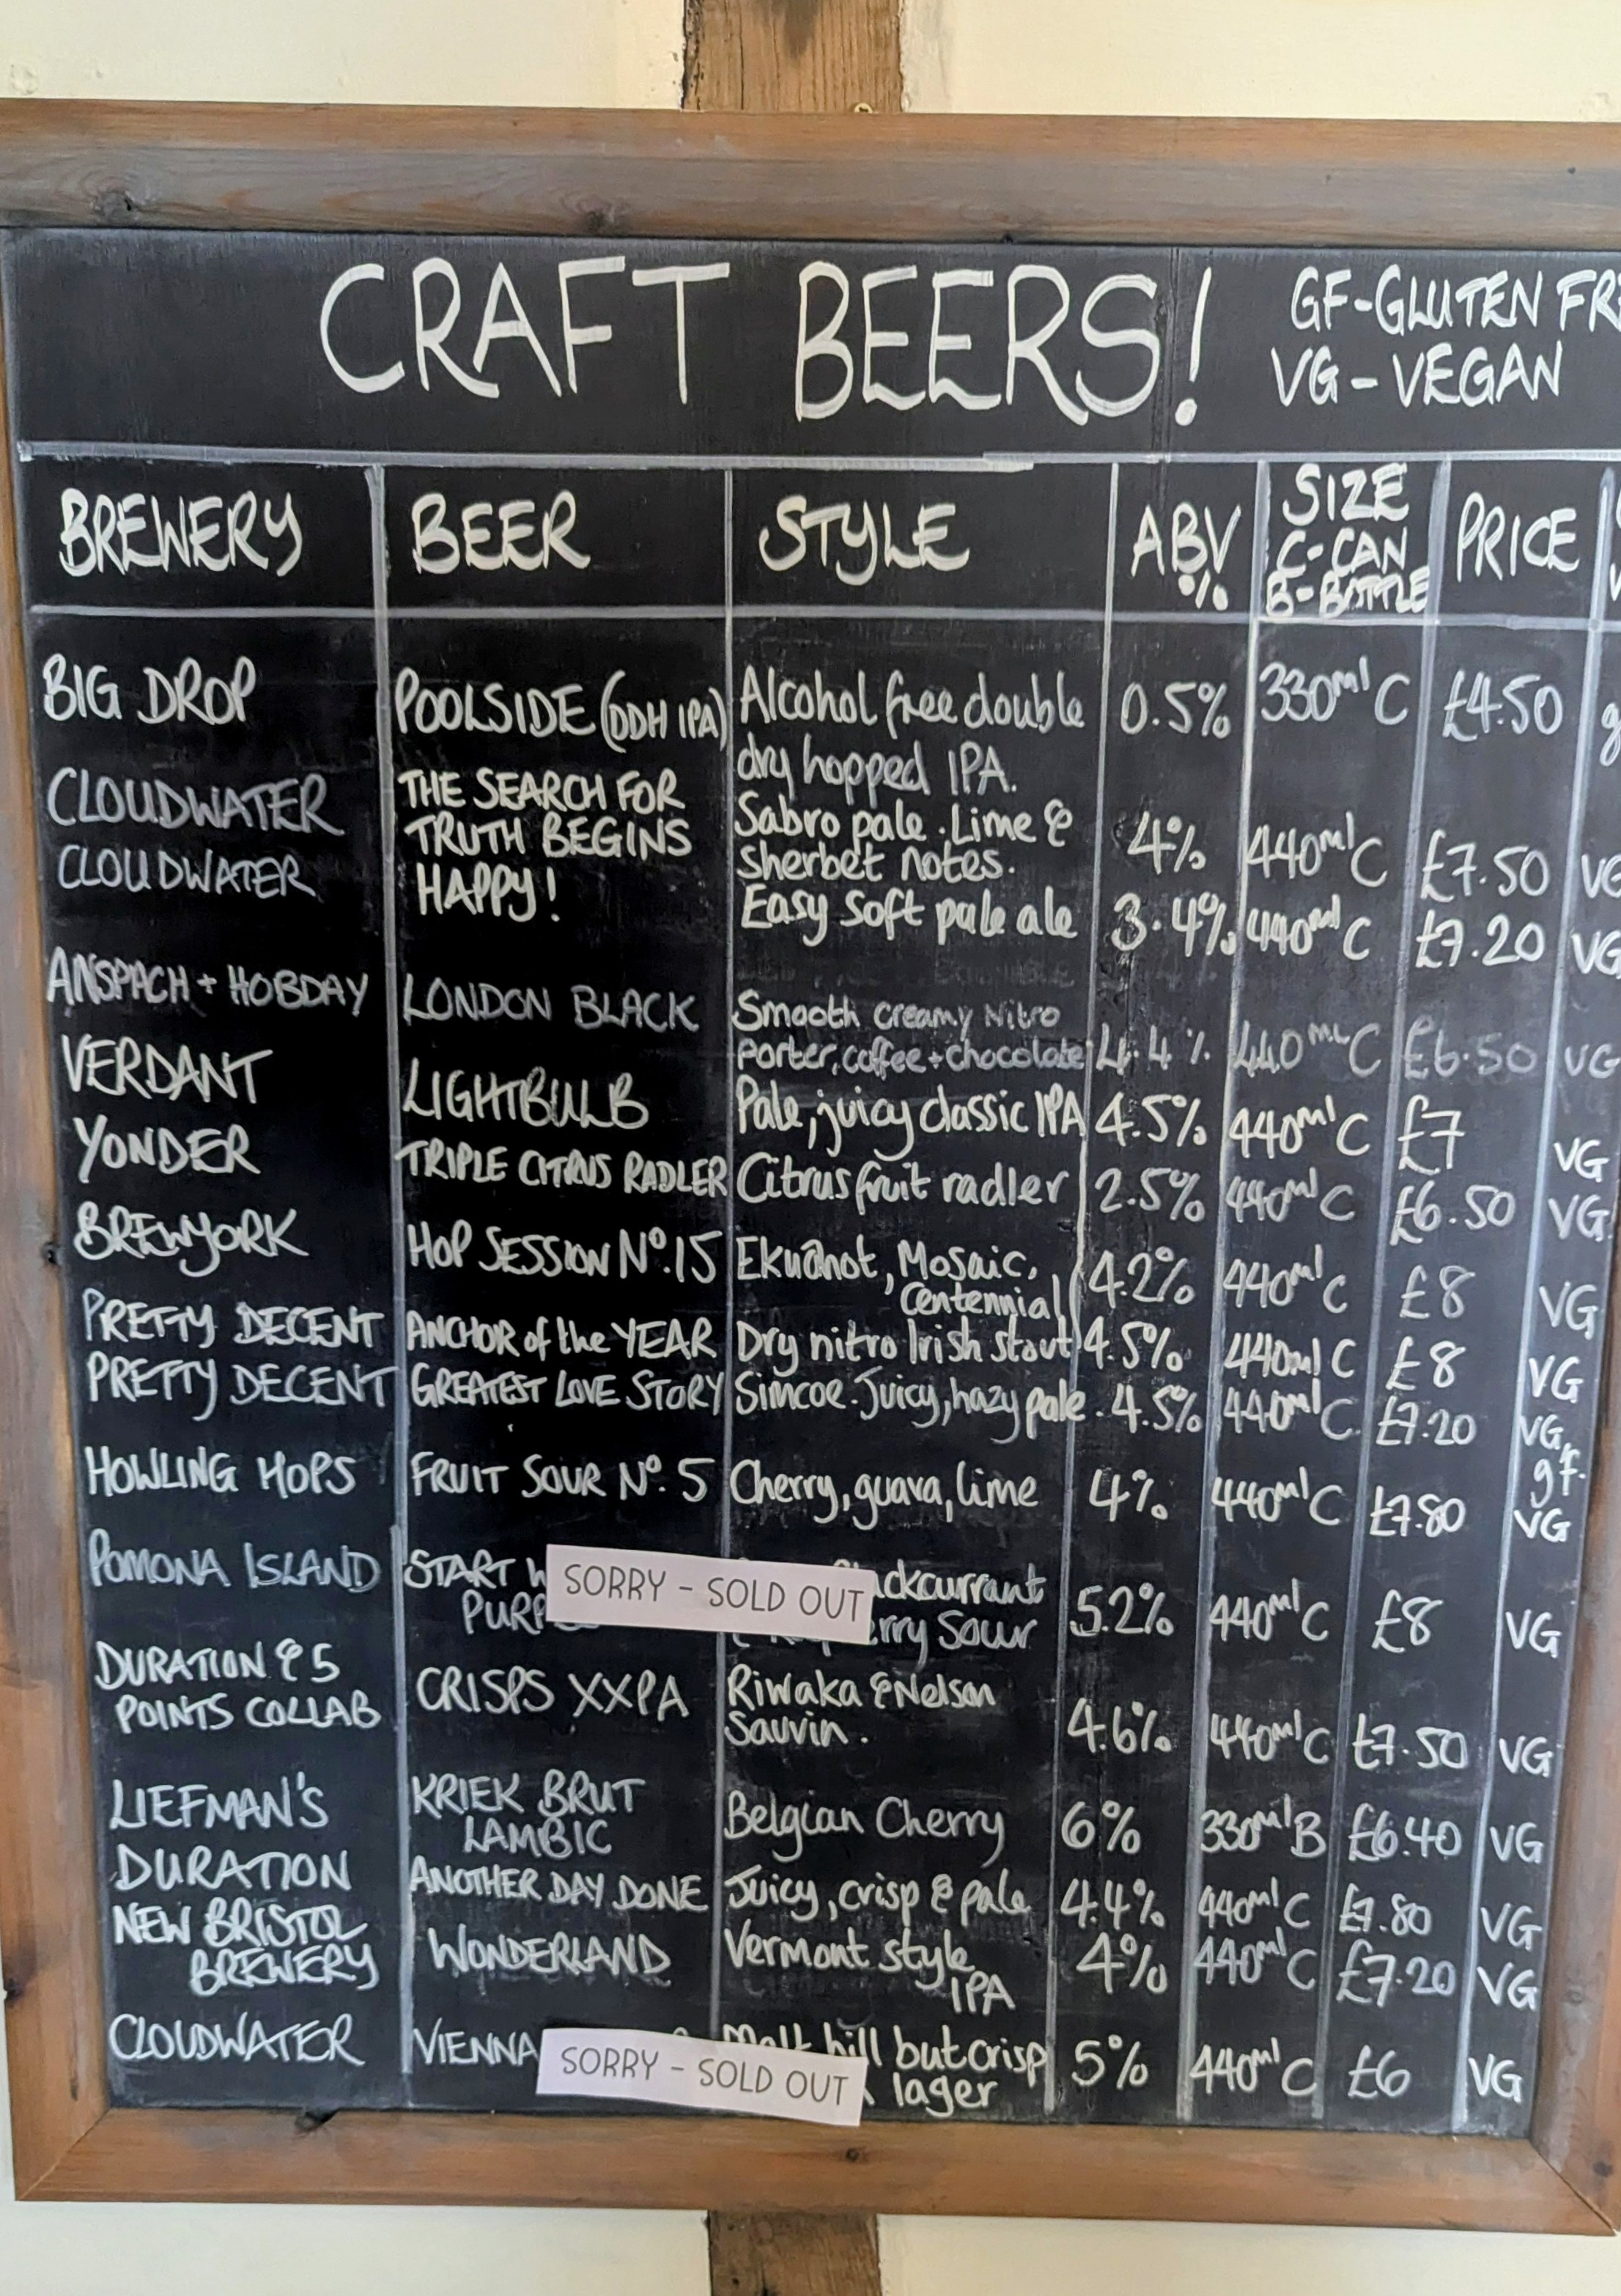 CRAFT BEERS!
GF-GLUTEN FR
VG-VEGAN
BREWERY BEER STYLE ABV % SIZE C-CAN B-BOTTLE PRICE
BIG DROP POOLSIDE (DDH IPA) Alcohol free double 0.5% 330ml C £4.50 g
dry hopped IPA.
CLOUDWATER THE SEARCH FOR Sabro pale. Lime &
TRUTH BEGINS sherbet notes. 4% 440ml C £7.50 VG
CLOUDWATER HAPPY! Easy soft pale ale 3.4% 440ml C £7.20 VG
ANSPACH + HOBDAY LONDON BLACK Smooth creamy Nitro
Porter, coffee + chocolate 4.4% 440ML C £6.50 VG
VERDANT LIGHTBULB Pale, juicy classic IPA 4.5% 440ml C £7 VG
YONDER TRIPLE CITRUS RADLER Citrus fruit radler 2.5% 440ml C £6.50 VG
BREWYORK HOP SESSION Nº.15 Ekuanot, Mosaic, 4.2% 440ml C £8 VG
Centennial
PRETTY DECENT ANCHOR of the YEAR Dry nitro Irish stout 4.5% 440ml C £8 VG
PRETTY DECENT GREATEST LOVE STORY Simcoe. Juicy, hazy pale. 4.5% 440ml C £7.20 VG,
gf.
HOWLING HOPS FRUIT SOUR Nº.5 Cherry, guava, lime 4% 440ml C £7.80 VG
POMONA ISLAND START W SORRY - SOLD OUT ackcurrant 5.2% 440ml C £8 VG
PURP rry Sour
DURATION & 5 CRISPS XXPA Riwaka & Nelson
POINTS COLLAB Sauvin. 4.6% 440ml C £7.50 VG
LIEFMAN'S KRIEK BRUT Belgian Cherry 6% 330ml B £6.40 VG
LAMBIC
DURATION ANOTHER DAY DONE Juicy, crisp & pale 4.4% 440ml C £7.80 VG
NEW BRISTOL WONDERLAND Vermont style 4% 440ml C £7.20 VG
BREWERY IPA
CLOUDWATER VIENNA but crisp 5% 440ml C £6 VG
SORRY - SOLD OUT lager